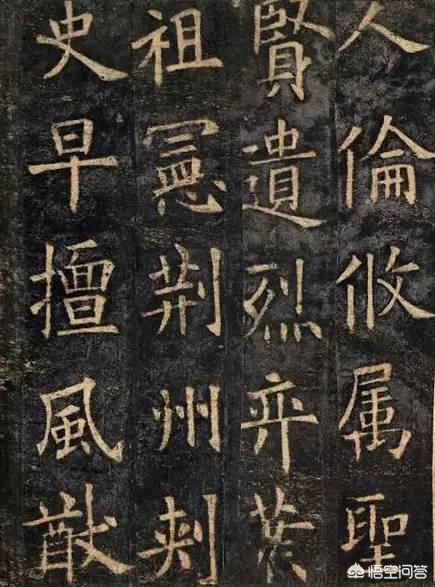 人倫攸属聖
賢遺烈弈葉
祖憲荊州刾
史早擅風猷
悟空问答